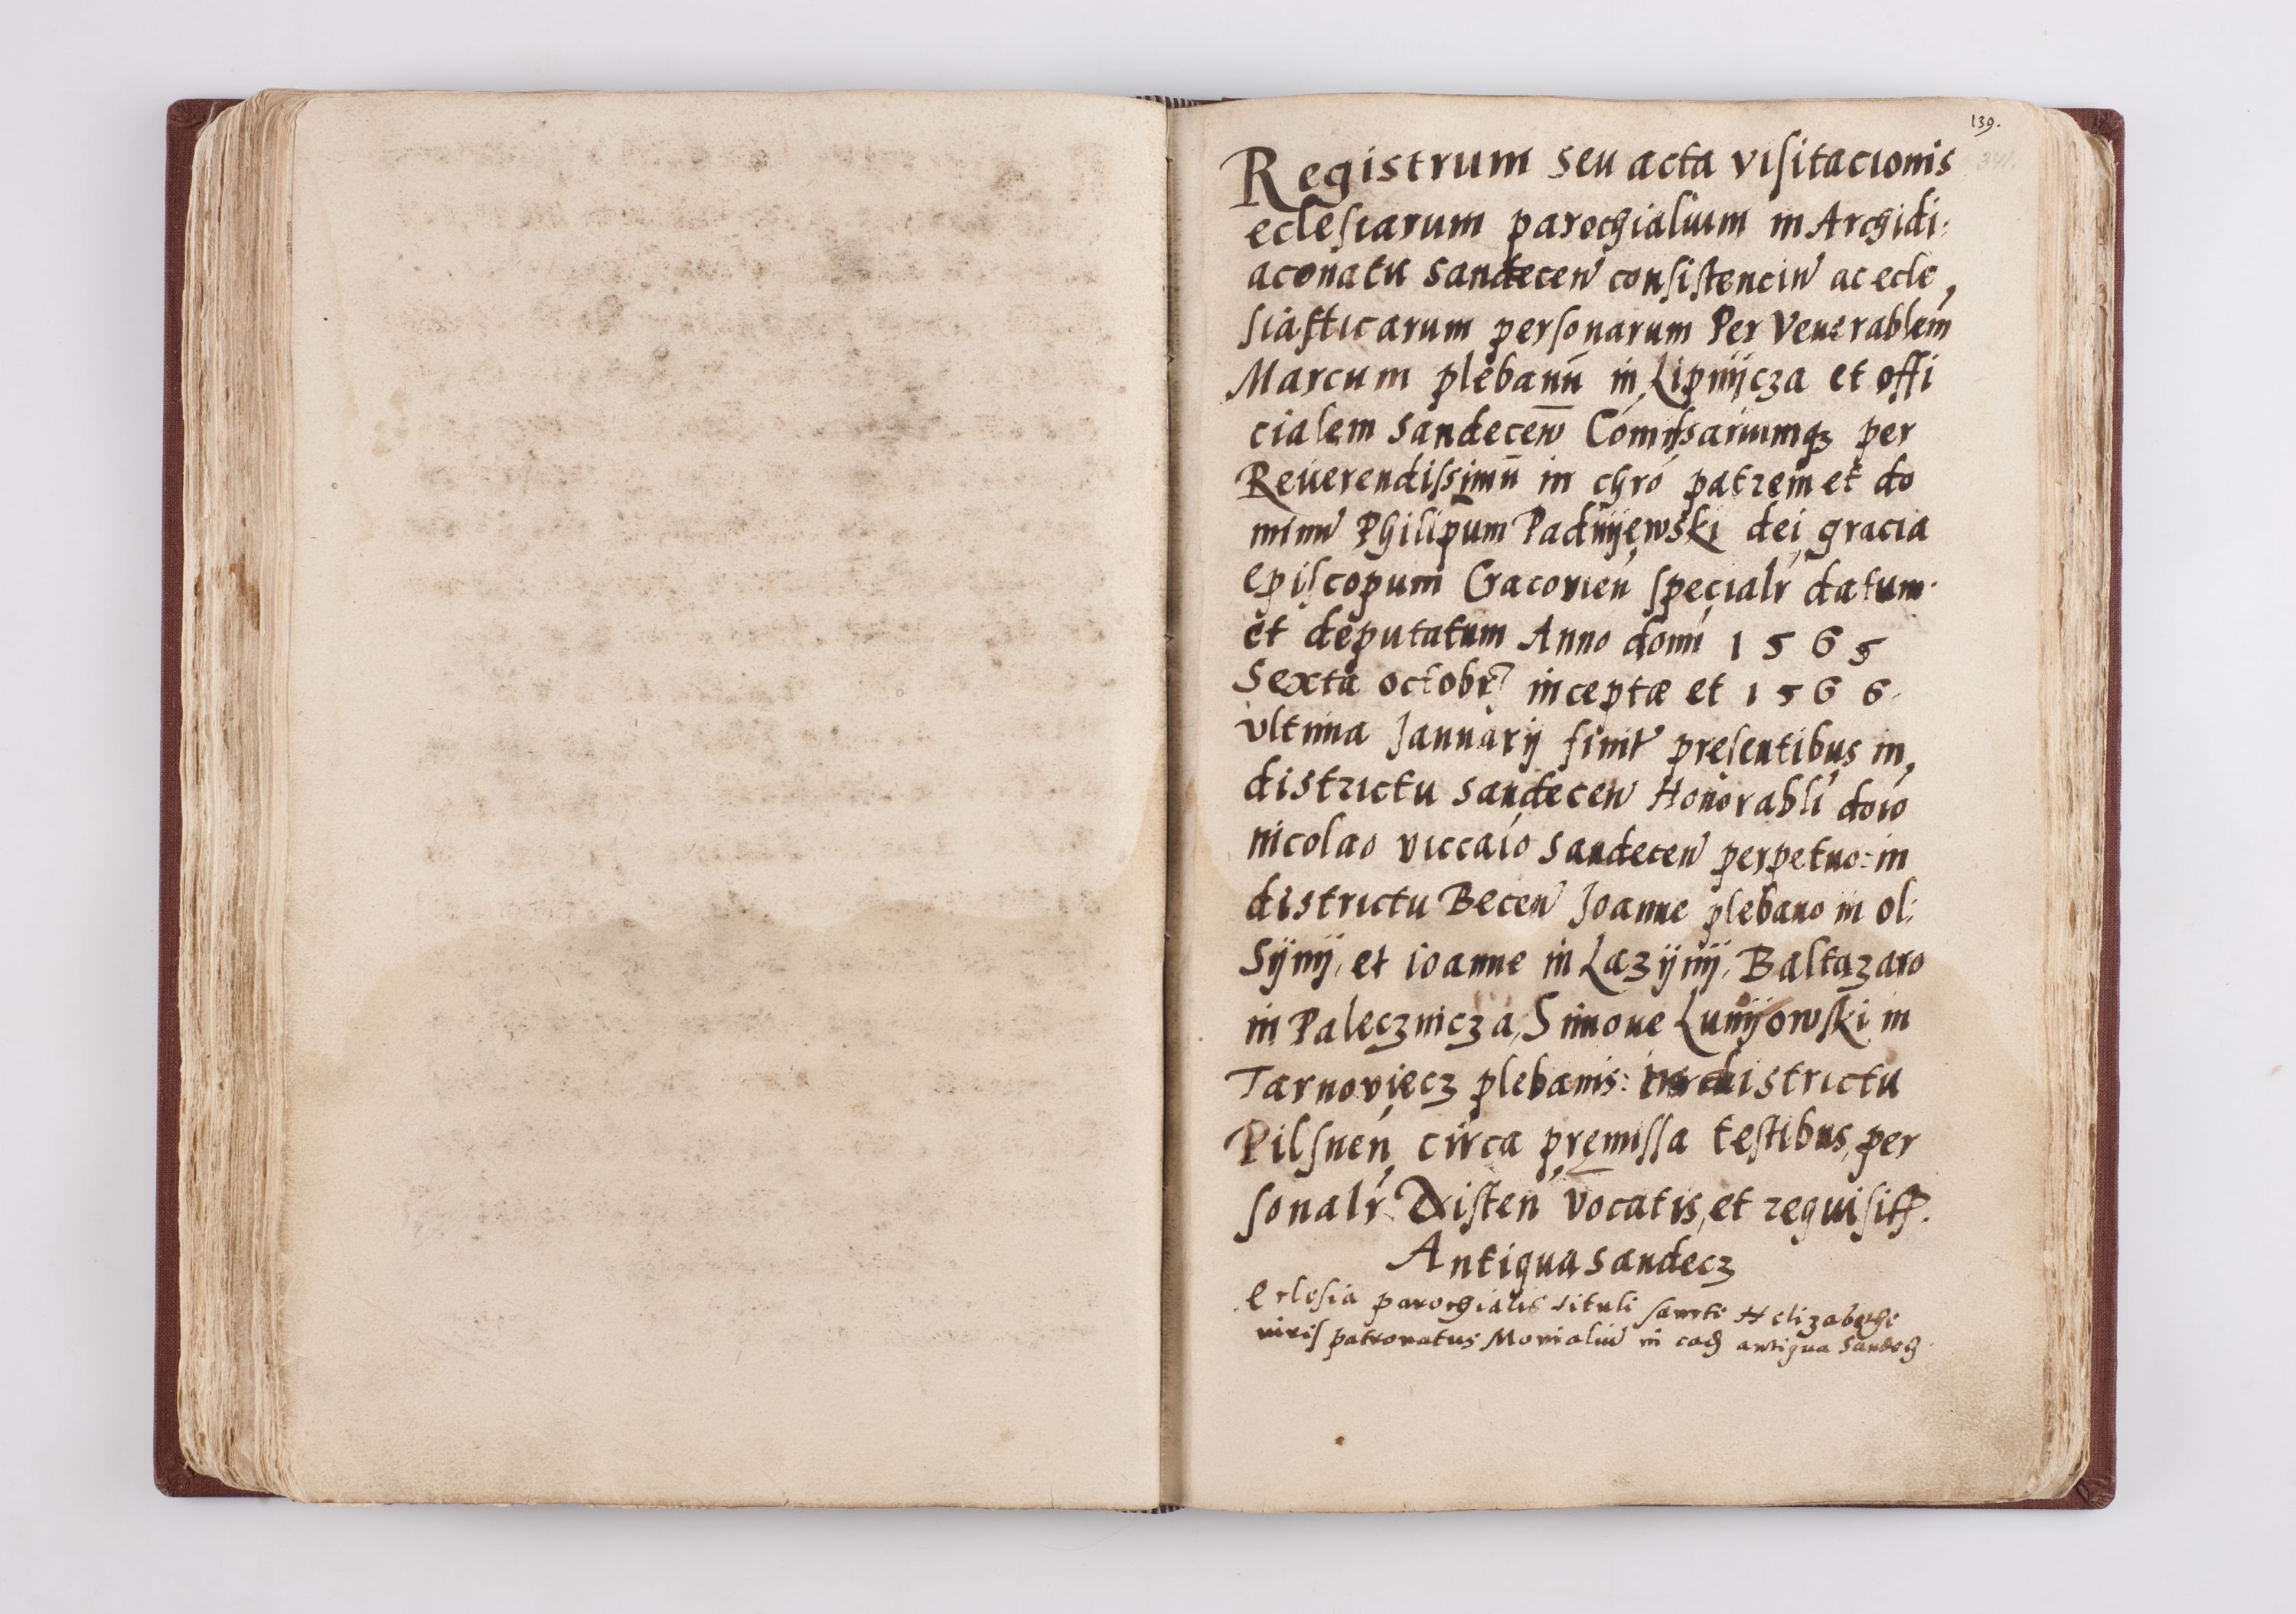 139.
341.
Registrum seu acta visitacionis
eclesiarum parochialium in Archidi:
aconatu sandecen consistenciū ac ecle,
siasticarum personarum Per Venerablem
Marcum plebanū in Lipnijcza et offi
cialem sandecen̄ Com̄issariumqȝ per
Reuerendissimū in chrō patrem et do
minū Philipum Padnijewski dei gracia
episcopum Cracouien specialr datum
et deputatum Anno domi 1565
Sexta octobr inceptæ et 1566
vltima Januarij finitˀ presentibus in,
districtu sandecen Honorabli doīo
nicolao viccaio sandecen perpetuo: in
districtu Becen Joanne plebano in ol:
Sijnij, et ioanne in Lazijnij, Baltazaro
in Palecznicza, Simone Lunijowski in
Tarnoviecz plebanis: in districtu
Pilsnen circa pręmissa testibus, per
sonalr Existen vocatis, et requisitis.
Antiqua sandecz
Eclesia parochialis tituli sancte Helizabethe
iuris patronatus Monialiū in eadȝ antiqua Sandecȝ